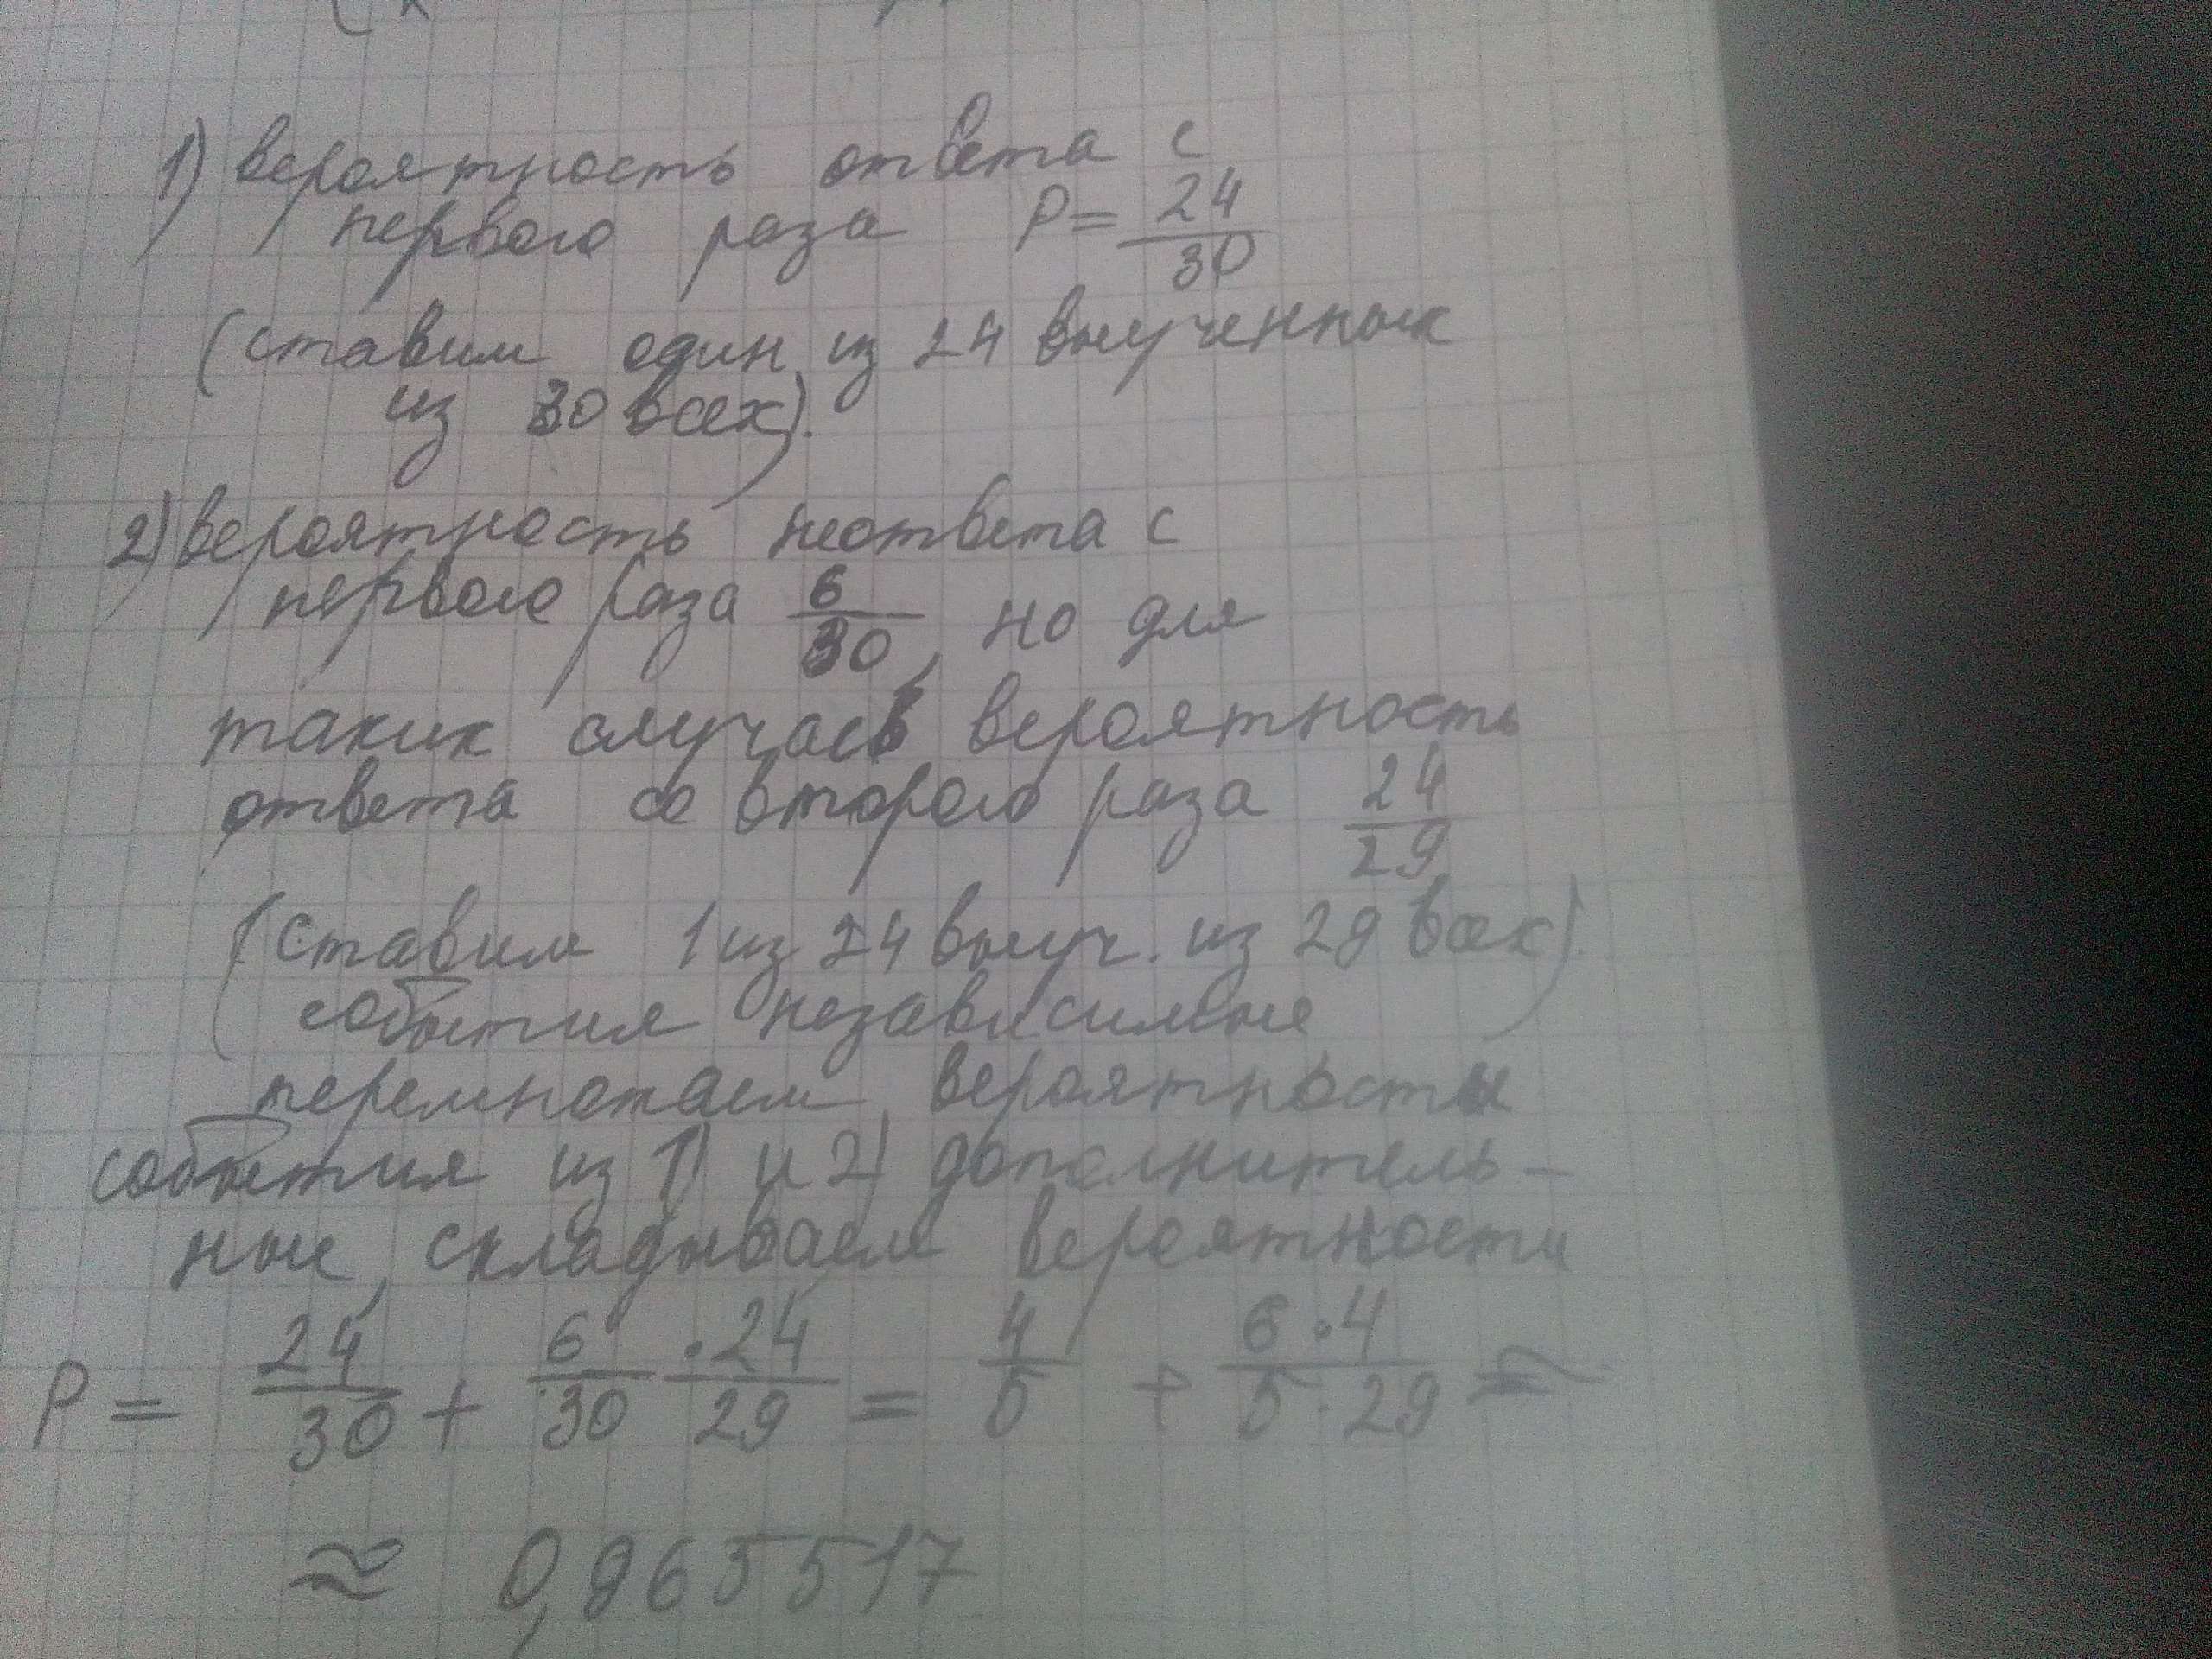 1) вероятность ответа с
первого раза P = 24/30
(ставим один из 24 выученных
из 30 всех).
2) вероятность неответа с
первого раза 6/30, но для
таких случаев вероятность
ответа со второго раза 24/29
(ставим 1 из 24 выуч. из 29 всех).
события независимые
перемножаем вероятности
события из 1) и 2) дополнитель-
ные, складываем вероятности
P = 24/30 + 6/30 · 24/29 = 4/5 + 6·4/5·29 ≈
≈ 0,965517